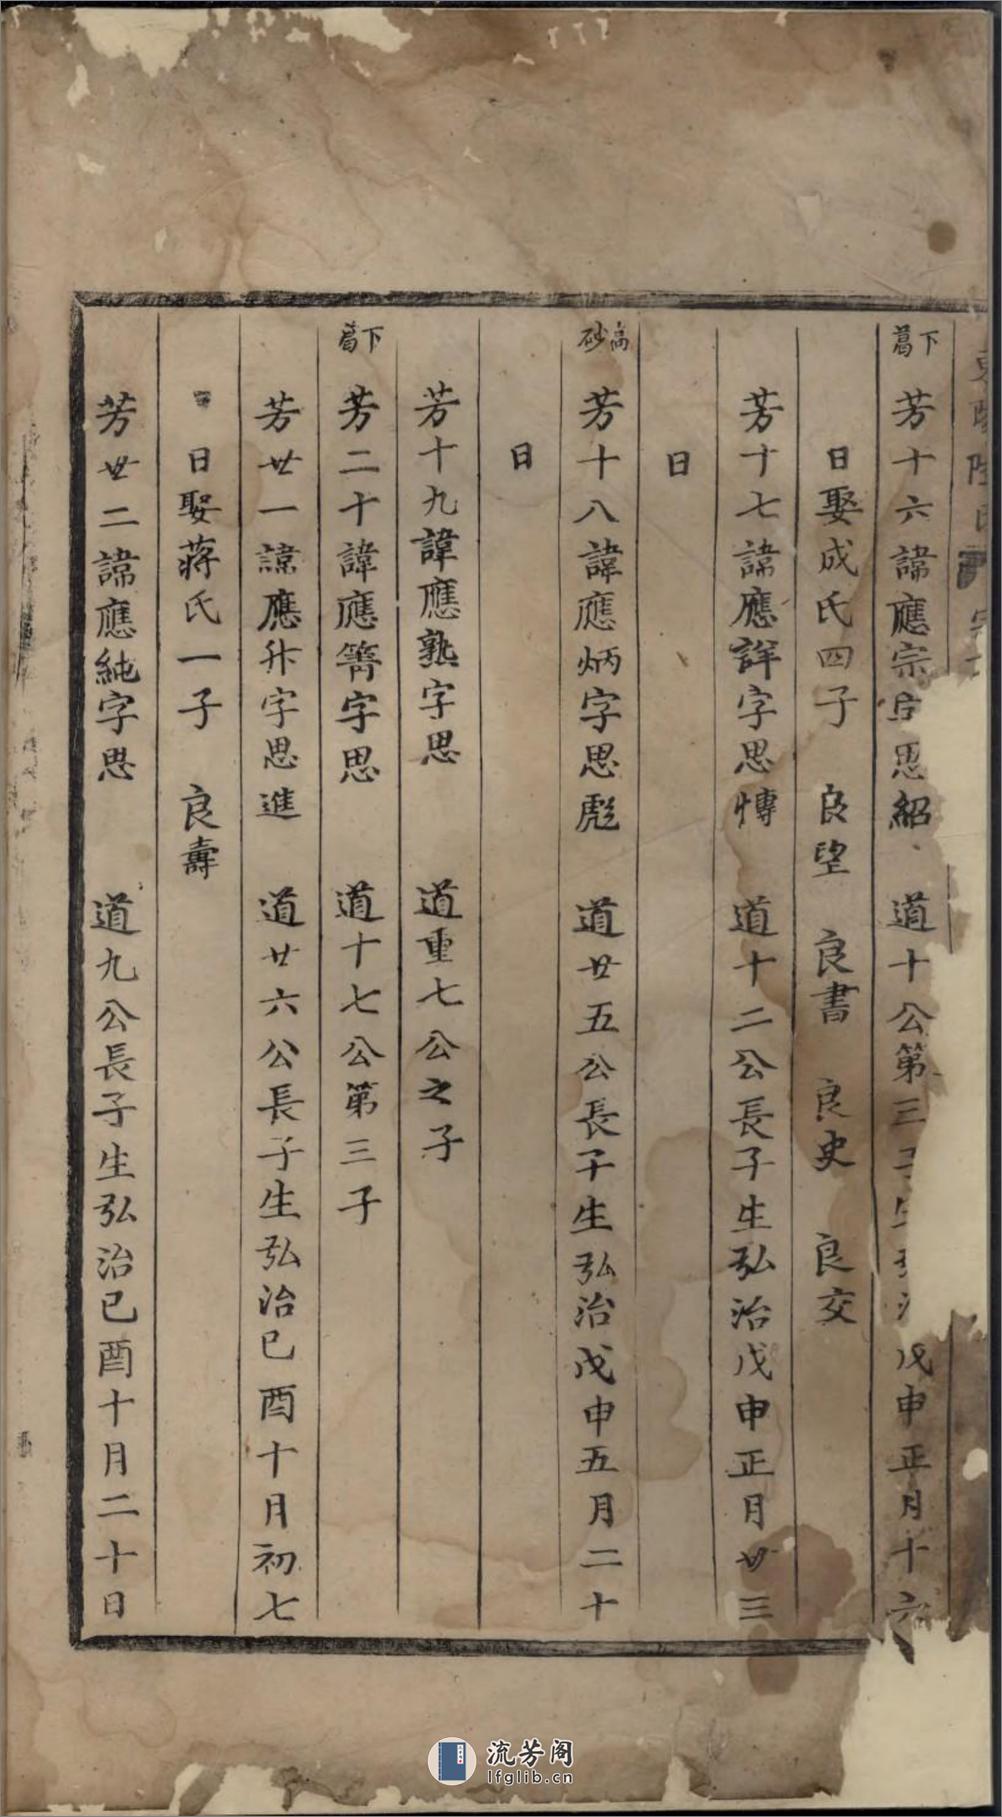 下葛
芳十六諱應宗字思紹 道十公第三子生弘治戊申正月十六
日娶成氏四子 良望 良書 良史 良交
芳十七諱應詳字思愽 道十二公長子生弘治戊申正月廿三
日
高砂
芳十八諱應炳字思彪 道廿五公長子生弘治戊申五月二十
日
芳十九諱應熟字思 道重七公之子
下葛
芳二十諱應簹字思 道十七公第三子
芳廿一諱應升字思進 道廿六公長子生弘治已酉十月初七
日娶蔣氏一子 良壽
芳廿二諱應純字思 道九公長子生弘治已酉十月二十日
流芳阁
lfglib.cn